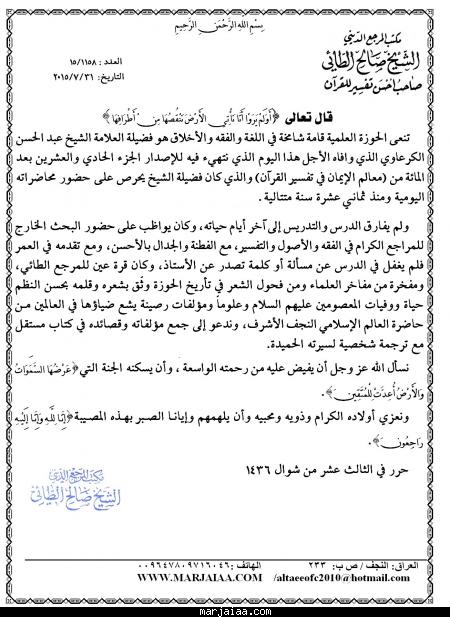 بِسْمِ اللهِ الرَّحْمَنِ الرَّحِيمِ
مكتب المرجع الديني
الشيخ صالح الطائي
صاحب أحسن تفسير للقرآن
العدد : ١٥/١١٥٨
التاريخ: ٢٠١٥/٧/٣١
قال تعالى ﴿أَوَلَمْ يَرَوْا أَنَّا نَأْتِي الْأَرْضَ نَنْقُصُهَا مِنْ أَطْرَافِهَا﴾
تنعى الحوزة العلمية قامة شامخة في اللغة والفقه والأخلاق هو فضيلة العلامة الشيخ عبد الحسن
الكرعاوي الذي وافاه الأجل هذا اليوم الذي ننتهي فيه للإصدار الجزء الحادي والعشرين بعد
المائة من (معالم الإيمان في تفسير القرآن) والذي كان فضيلة الشيخ يحرص على حضور محاضراته
اليومية ومنذ ثماني عشرة سنة متتالية.
ولم يفارق الدرس والتدريس إلى آخر أيام حياته، وكان يواظب على حضور البحث الخارج
للمراجع الكرام في الفقه والأصول والتفسير، مع الفطنة والجدال بالأحسن، ومع تقدمه في العمر
فلم يغفل في الدرس عن مسألة أو كلمة تصدر عن الأستاذ، وكان قرة عين للمرجع الطائي،
ومفخرة من مفاخر العلماء ومن فحول الشعر في تأريخ الحوزة وثّق بشعره وقلمه بحسن النظم
حياة ووفيات المعصومين عليهم السلام وعلوماً ومؤلفات رصينة يشع ضياؤها في العالمين من
حاضرة العالم الإسلامي النجف الأشرف، وندعو إلى جمع مؤلفاته وقصائده في كتاب مستقل
مع ترجمة شخصية لسيرته الحميدة.
نسأل الله عز وجل أن يفيض عليه من رحمته الواسعة ، وأن يسكنه الجنة التي ﴿عَرْضُهَا السَّمَوَاتُ
وَالْأَرْضُ أُعِدَّتْ لِلْمُتَّقِينَ﴾.
ونعزي أولاده الكرام وذويه ومحبيه وأن يلهمهم وإيانا الصبر بهذه المصيبة ﴿إِنَّا لِلَّهِ وَإِنَّا إِلَيْهِ
رَاجِعُونَ﴾.
حرر في الثالث عشر من شوال ١٤٣٦
مكتب المرجع الديني
الشيخ صالح الطائي
العراق: النجف / ص ب: ٢٣٣ الهاتف: ٠٠٩٦٤٧٨٠٩٧١٦٠٤٦
WWW.MARJALAA.COM /altaeeofc2010@hotmail.com
marjalaa.com